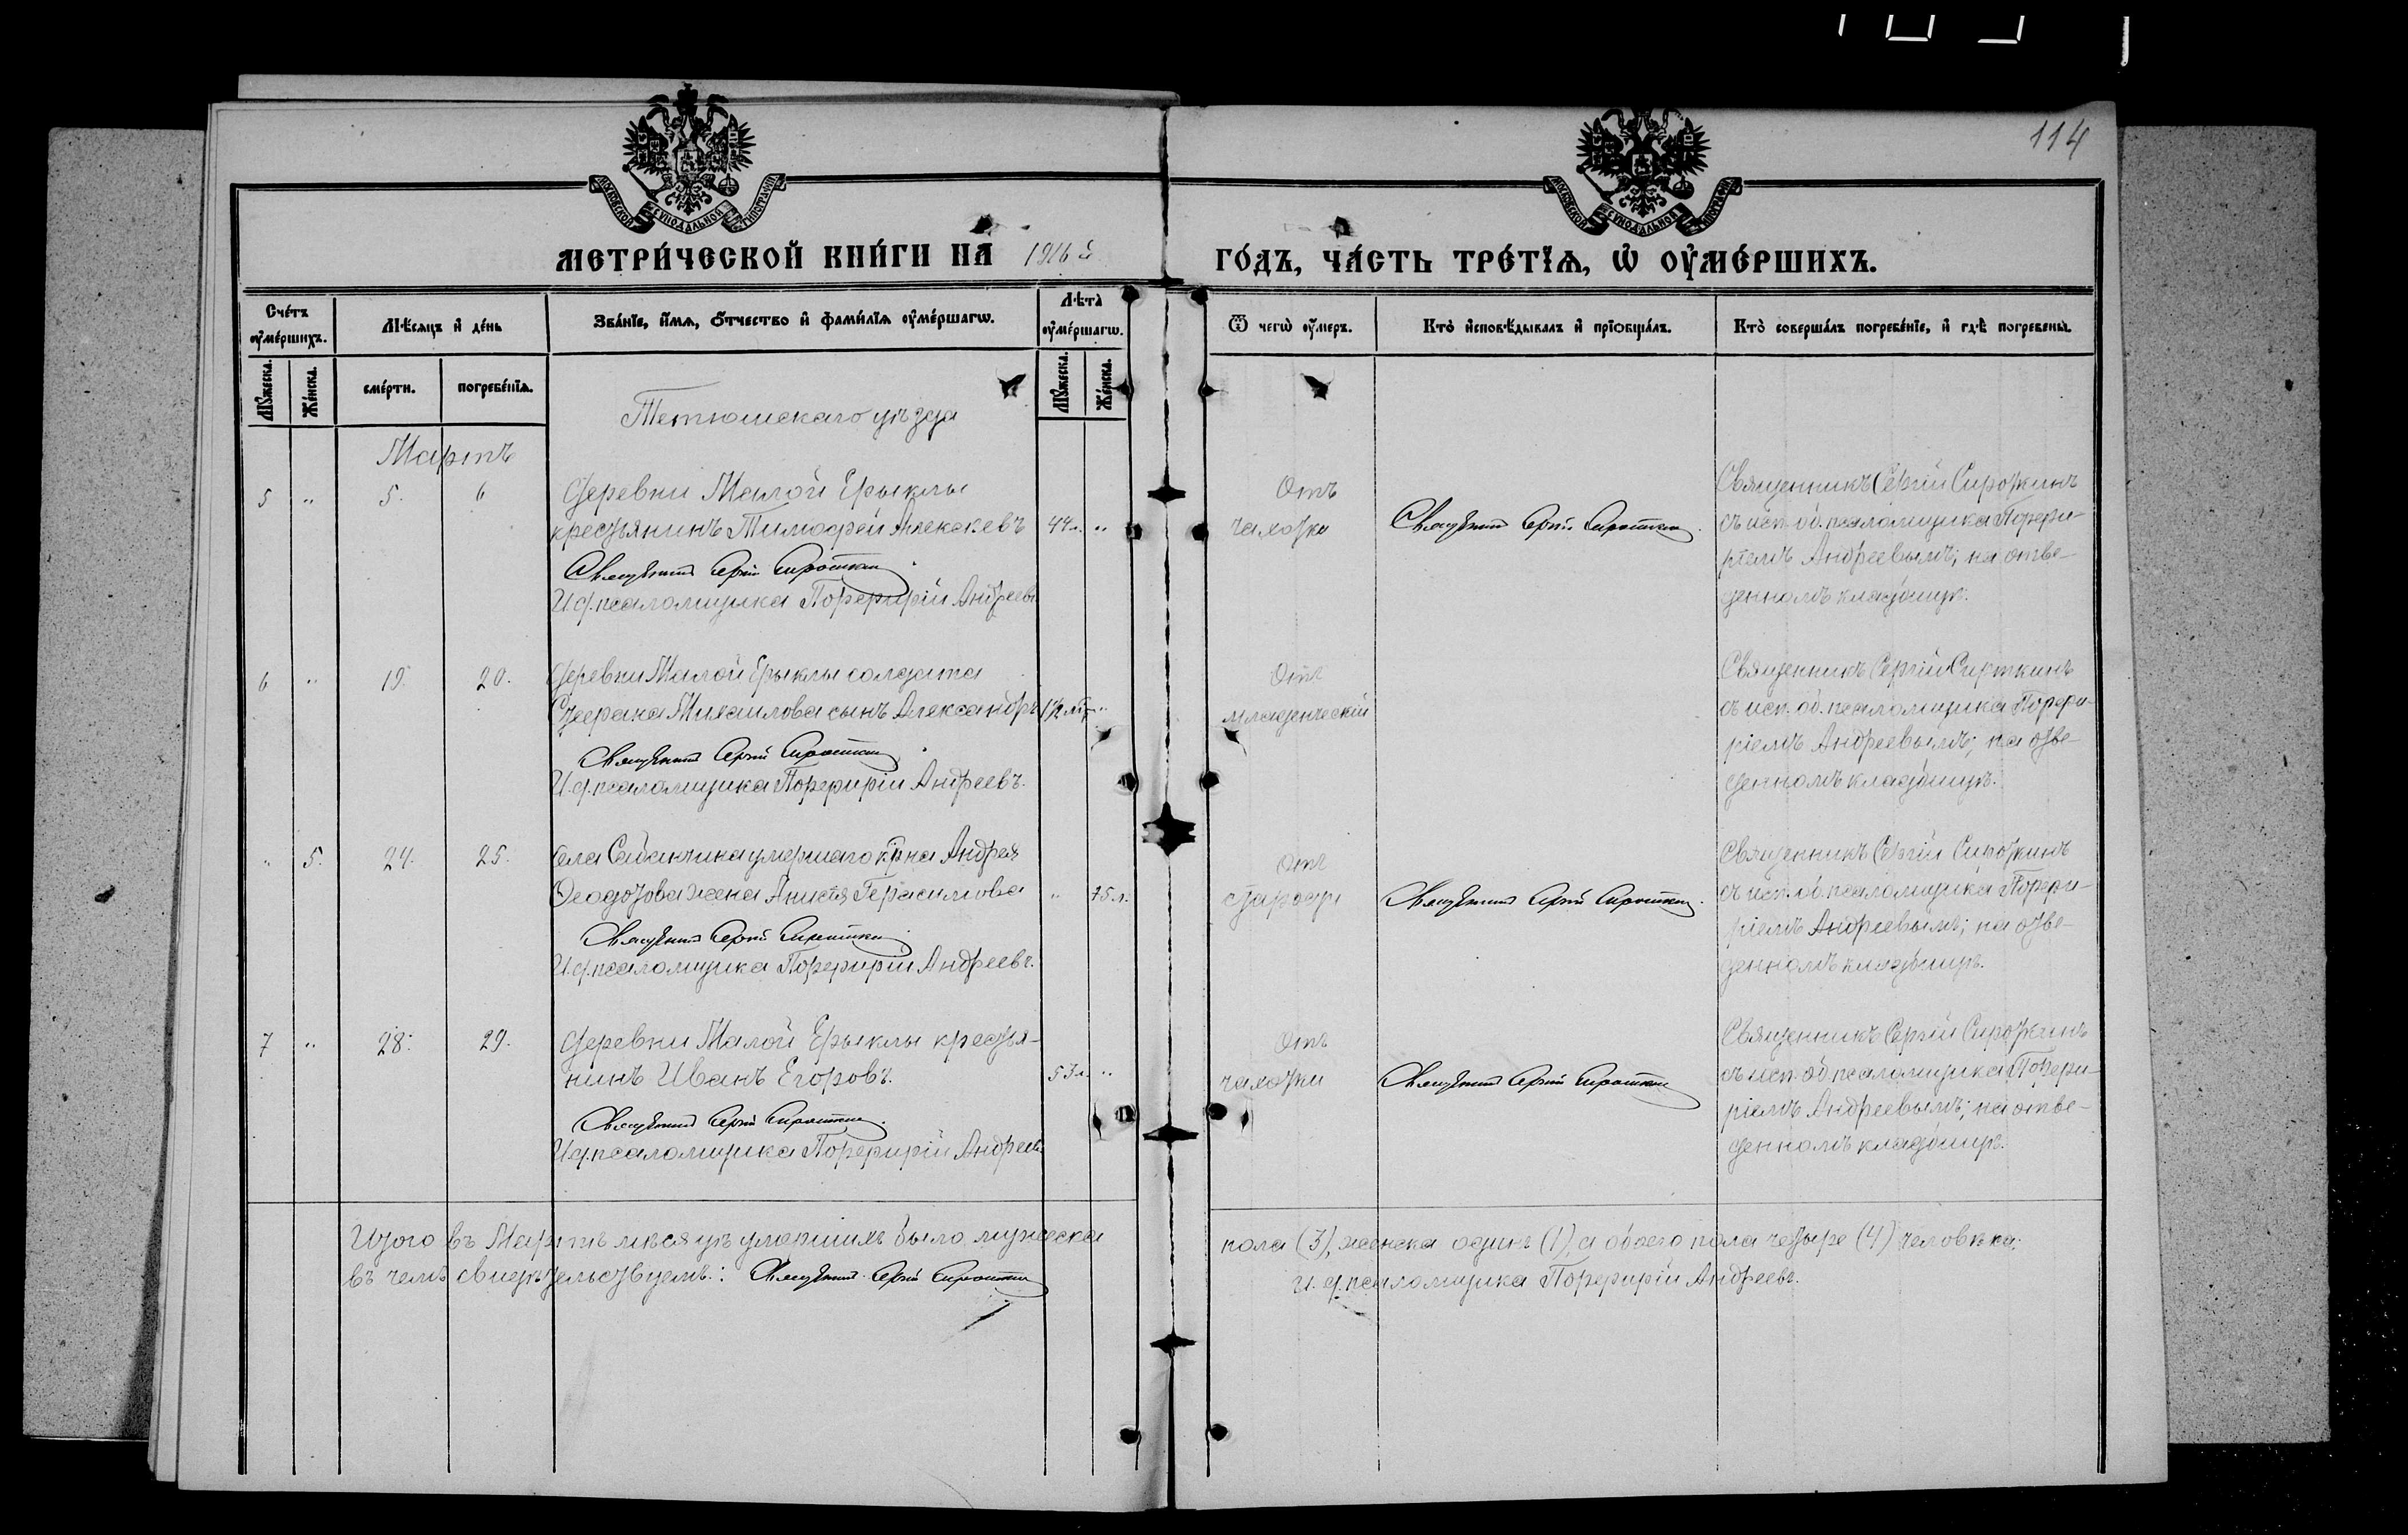 114
МОСКОВСКОЙ СѴНОДАЛЬНОЙ ТИПОГРАФІИ
МОСКОВСКОЙ СѴНОДАЛЬНОЙ ТИПОГРАФІИ
МЕТРИ́ЧЕСКОЙ КНИ́ГИ НА 1916 й ГО́ДЪ, ЧА́СТЬ ТРЕ́ТЇѦ, Ѡ҆ ОУ҆МЕ́РШИХЪ.
Сче́тъ оу҆ме́ршихъ.
Мѣ́сѧцъ и҆ де́нь
Зва́нїе, и҆́мѧ, ѻ҆́тчество и҆ фами́лїѧ оу҆ме́ршагѡ.
Лѣ́та оу҆ме́ршагѡ.
Ѿ чегѡ̀ оу҆́меръ.
Кто̀ и҆сповѣ́дывалъ и҆ прїѡбща́лъ.
Кто̀ соверша́лъ погребе́нїе, и҆ гдѣ̀ погребены̀.
Мꙋ́жеска.
Же́нска.
сме́рти.
погребе́нїѧ.
Мꙋ́жеска.
Же́нска.
Тетюшскаго уѣзда
Мартъ
5 " 5. 6
Деревни Малой Ерыклы
крестьянинъ Тимофей Алексѣевъ 44 л. "
Священникъ Сергій Сироткин
И.д. псаломщика Порфирій Андреевъ
Отъ
чахотки
Священникъ Сергій Сироткин
Священникъ Сергій Сироткинъ
съ исп. об. псаломщика Порфи-
ріемъ Андреевымъ; на отве-
денномъ кладбищѣ.
6 " 19. 20.
Деревни Малой Ерыклы солдата
Михаилова сынъ Александръ 1½ "
Священникъ Сергій Сироткин
И.д. псаломщика Порфирій Андреевъ.
Отъ
младенческой
Священникъ Сергій Сироткинъ
съ исп. об. псаломщика Порфи-
ріемъ Андреевымъ; на отве-
денномъ кладбищѣ.
" 5. 24. 25.
Села умершаго кр-на Андрея
Ѳеодотова жена Анисія Герасимова " 75 л.
Священникъ Сергій Сироткин
И.д. псаломщика Порфирій Андреевъ.
Отъ
старости
Священникъ Сергій Сироткин
Священникъ Сергій Сироткинъ
съ исп. об. псаломщика Порфи-
ріемъ Андреевымъ; на отве-
денномъ кладбищѣ.
7 " 28. 29.
Деревни Малой Ерыклы крестья-
нинъ Иванъ Егоровъ. 53 л. "
Священникъ Сергій Сироткин
И.д. псаломщика Порфирій Андреевъ
Отъ
чахотки
Священникъ Сергій Сироткин
Священникъ Сергій Сироткинъ
съ исп. об. псаломщика Порфи-
ріемъ Андреевымъ; на отве-
денномъ кладбищѣ.
Итого въ Мартѣ мѣсяцѣ умершихъ было мужеска пола (3), женска одинъ (1), а обоего пола четыре (4) человѣка;
въ чемъ свидѣтельствуемъ: Священникъ Сергій Сироткин И.д. псаломщика Порфирій Андреевъ.